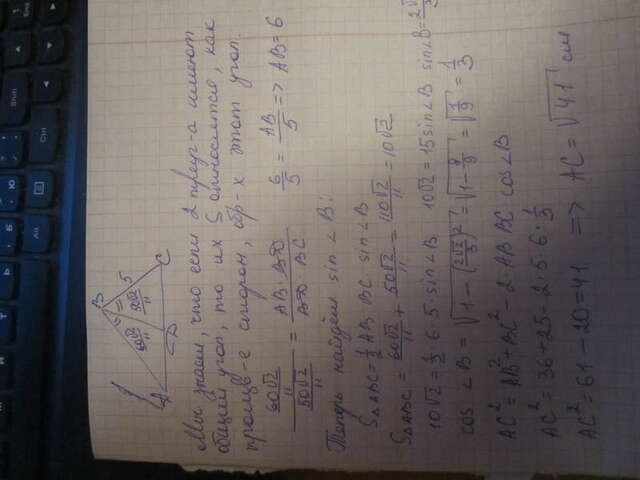 Shift
Alt
Ctrl
B
60√2/11
50√2/11
5
A
D
C
Мы знаем, что если 2 треуг-а имеют
общий угол, то их S относятся, как
произв-е сторон, обр-х этот угол.
(60√2/11)/(50√2/11) = AB · BD/BD · BC 6/5 = AB/5 => AB = 6
Теперь найдём sin ∠B:
S△ABC = 1/2 AB BC sin∠B
S△ABC = 60√2/11 + 50√2/11 = 110√2/11 = 10√2
10√2 = 1/2 · 6 · 5 · sin∠B 10√2 = 15 sin∠B sin∠B = 2√2/3
cos ∠B = √(1 − (2√2/3)²) = √(1 − 8/9) = √(1/9) = 1/3
AC² = AB² + BC² − 2 · AB BC cos∠B
AC² = 36 + 25 − 2 · 5 · 6 · 1/3
AC² = 61 − 20 = 41 => AC = √41 см